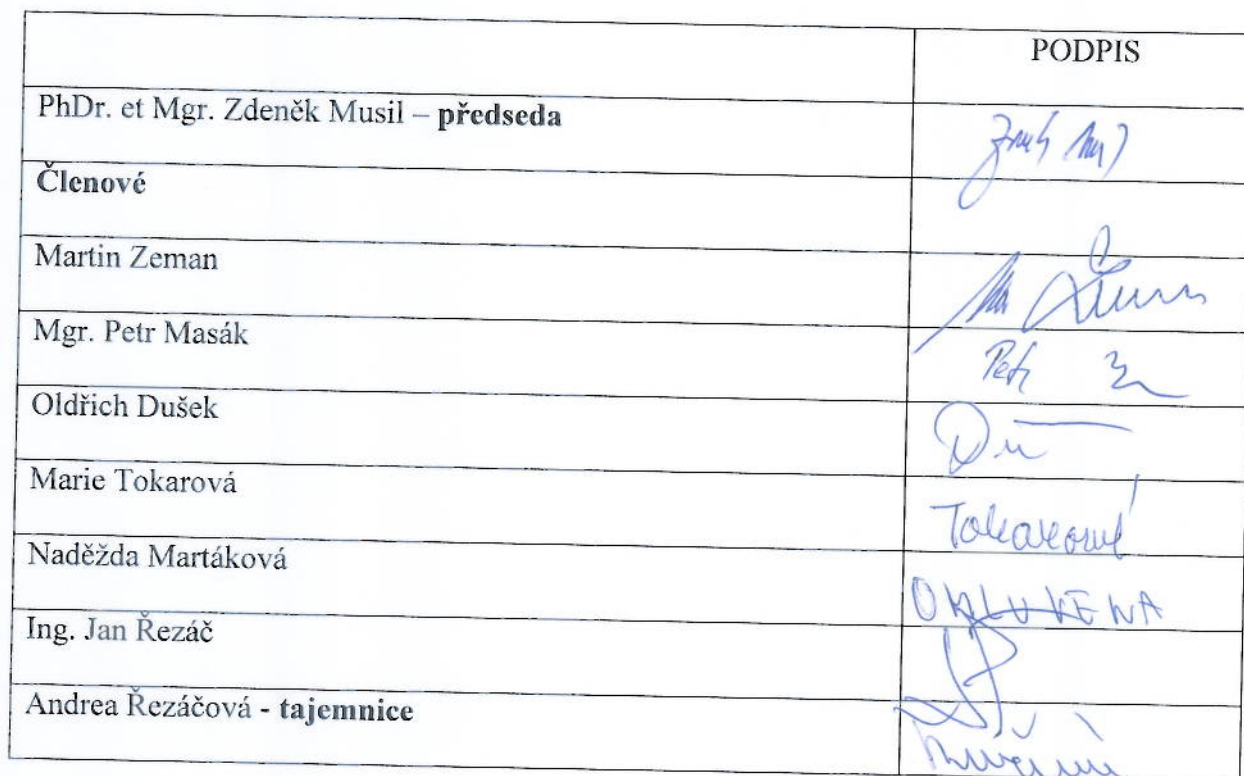 PODPIS
PhDr. et Mgr. Zdeněk Musil – předseda
Členové
Martin Zeman
Mgr. Petr Masák
Petr
Oldřich Dušek
Marie Tokarová
Tokarová
Naděžda Martáková
OMLUVENA
Ing. Jan Řezáč
Andrea Řezáčová - tajemnice